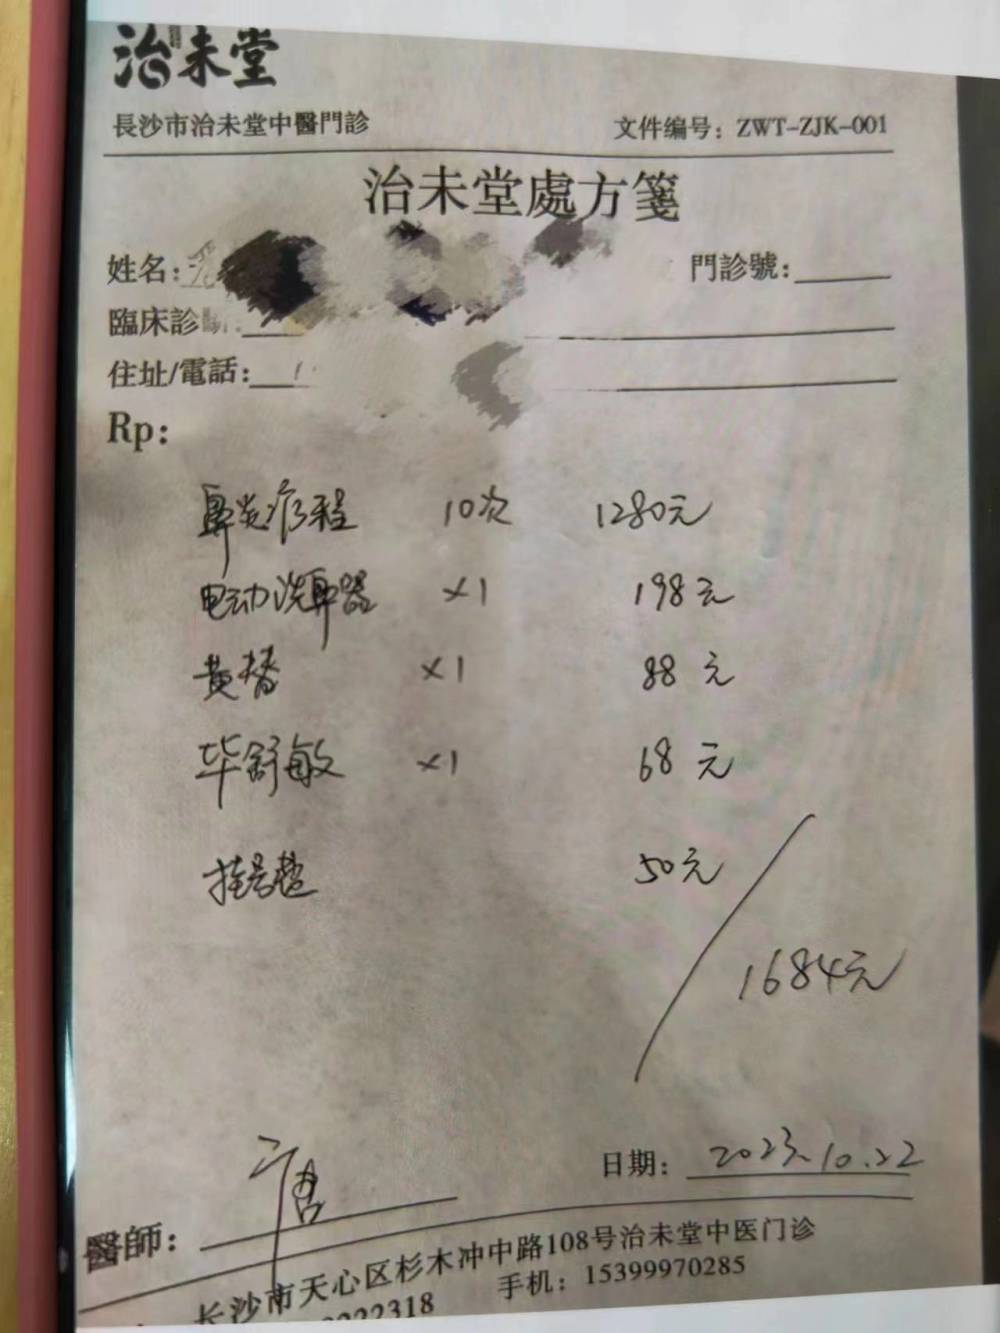 治未堂
長沙市治未堂中醫門診
文件编号：ZWT-ZJK-001
治未堂處方箋
姓名：
門診號：
臨床診斷：
住址/電話：
Rp：
鼻炎疗程 10次 1280元
电动洗鼻器 ×1 198元
黄 ×1 88元
毕舒敏 ×1 68元
挂号 50元
1684元
日期： 2023.10.22
醫師：
长沙市天心区杉木冲中路108号治未堂中医门诊
2222318 手机：15399970285